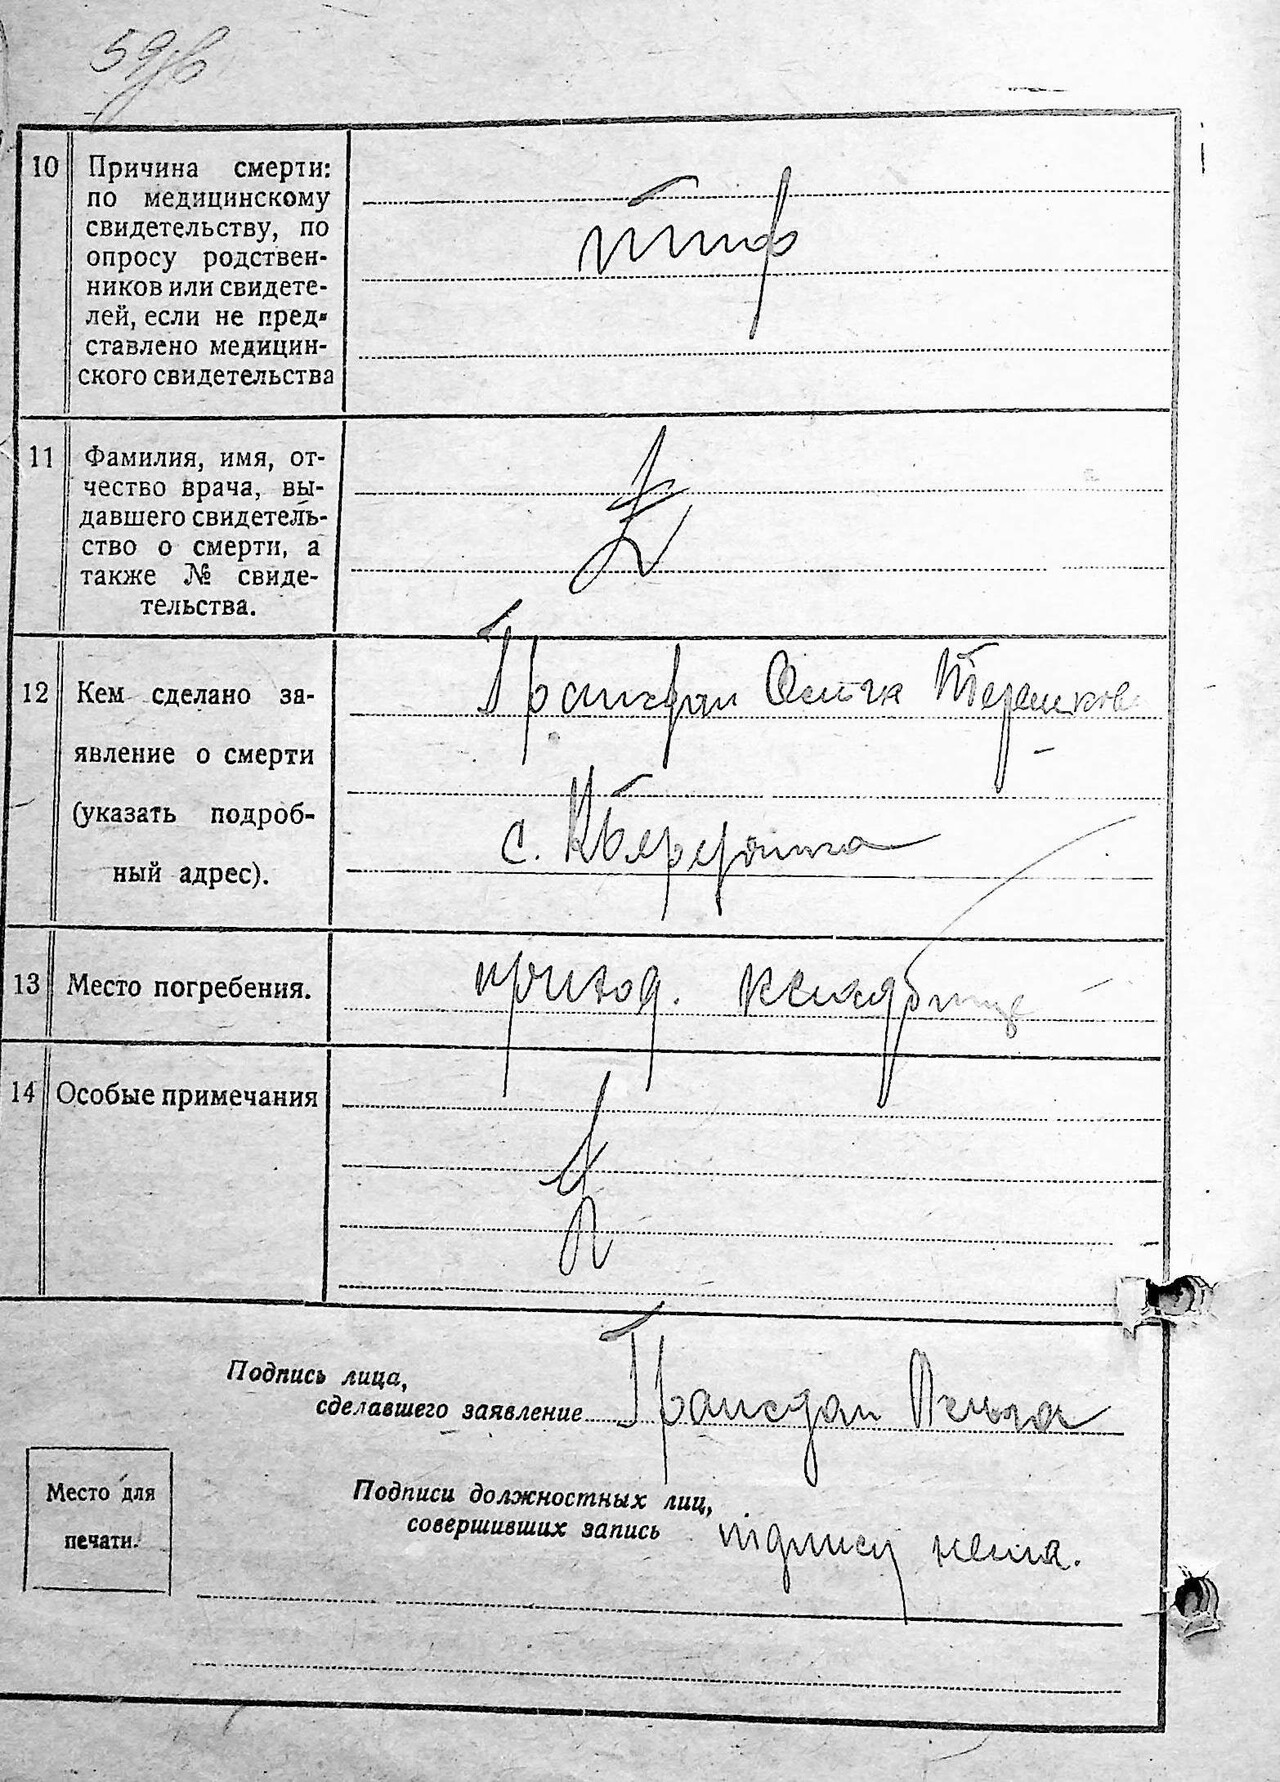 59зв
10 Причина смерти:
по медицинскому
свидетельству, по
опросу родствен-
ников или свидете-
лей, если не пред-
ставлено медицин-
ского свидетельства
тиф
11 Фамилия, имя, от-
чество врача, вы-
давшего свидетель-
ство о смерти, а
также № свиде-
тельства.
12 Кем сделано за-
явление о смерти
(указать подроб-
ный адрес).
с.
13 Место погребения.
приход. кладбище
14 Особые примечания
Подпись лица,
сделавшего заявление
Место для
печати.
Подписи должностных лиц,
совершивших запись
підпису нема.